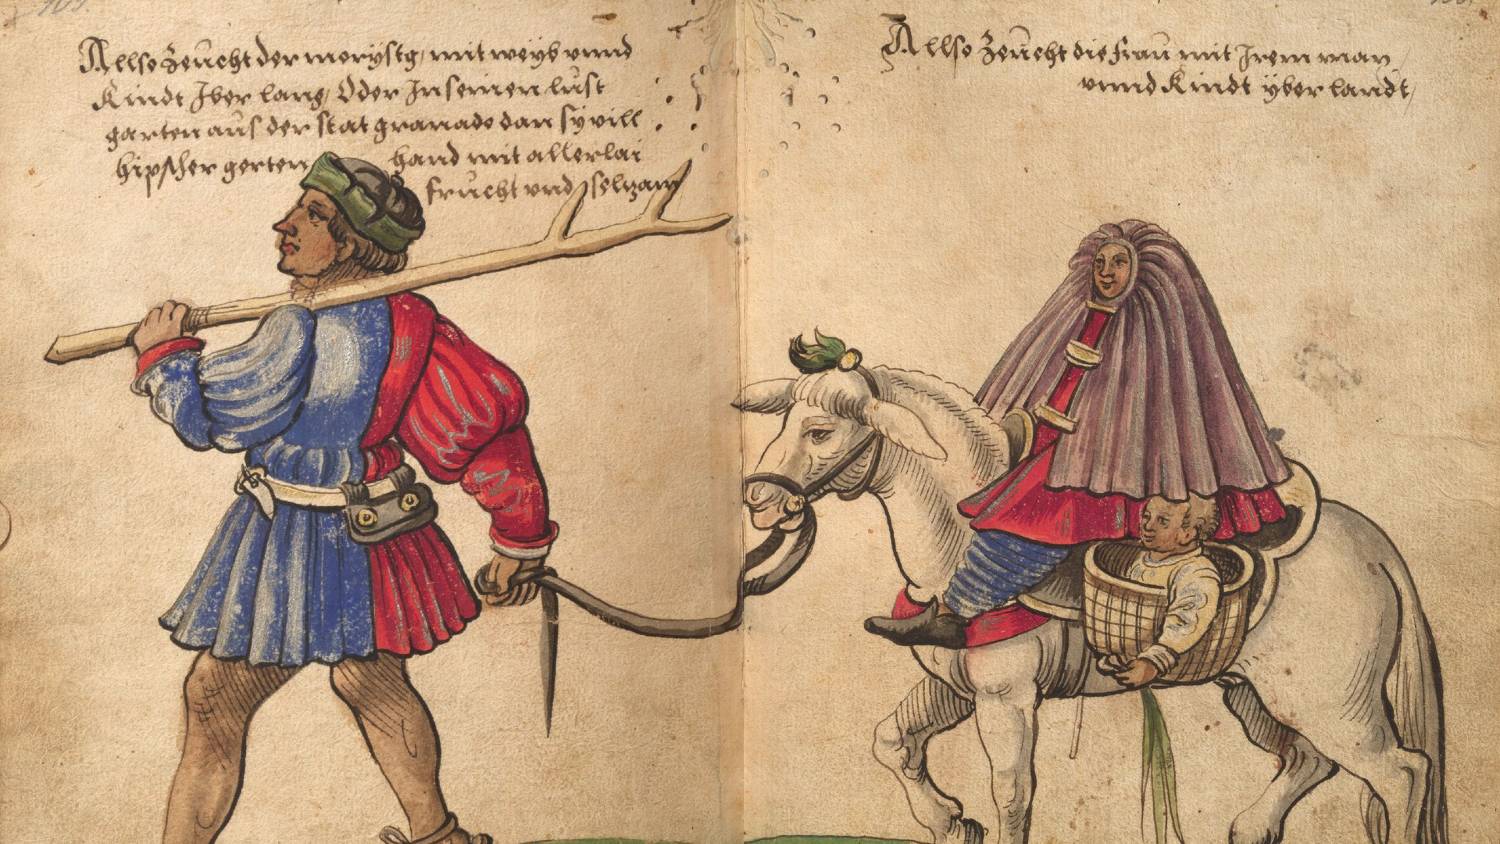 Allso zeücht der moryستg, mit weyb unnd
Kindt Iber lang, Oder In seinen lust
garten aus der stat granade dan sy vill
hipscher gerten hand mit allerlai
frücht vnd selzam
Allso zeücht die frau mit Irem man,
unnd Kindt yber landt,